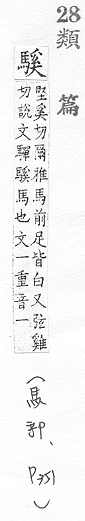 28
類篇
騱
堅奚切爾雅馬前足皆白又弦雞
切說文驒騱馬也文一重音一
(馬部、P351)